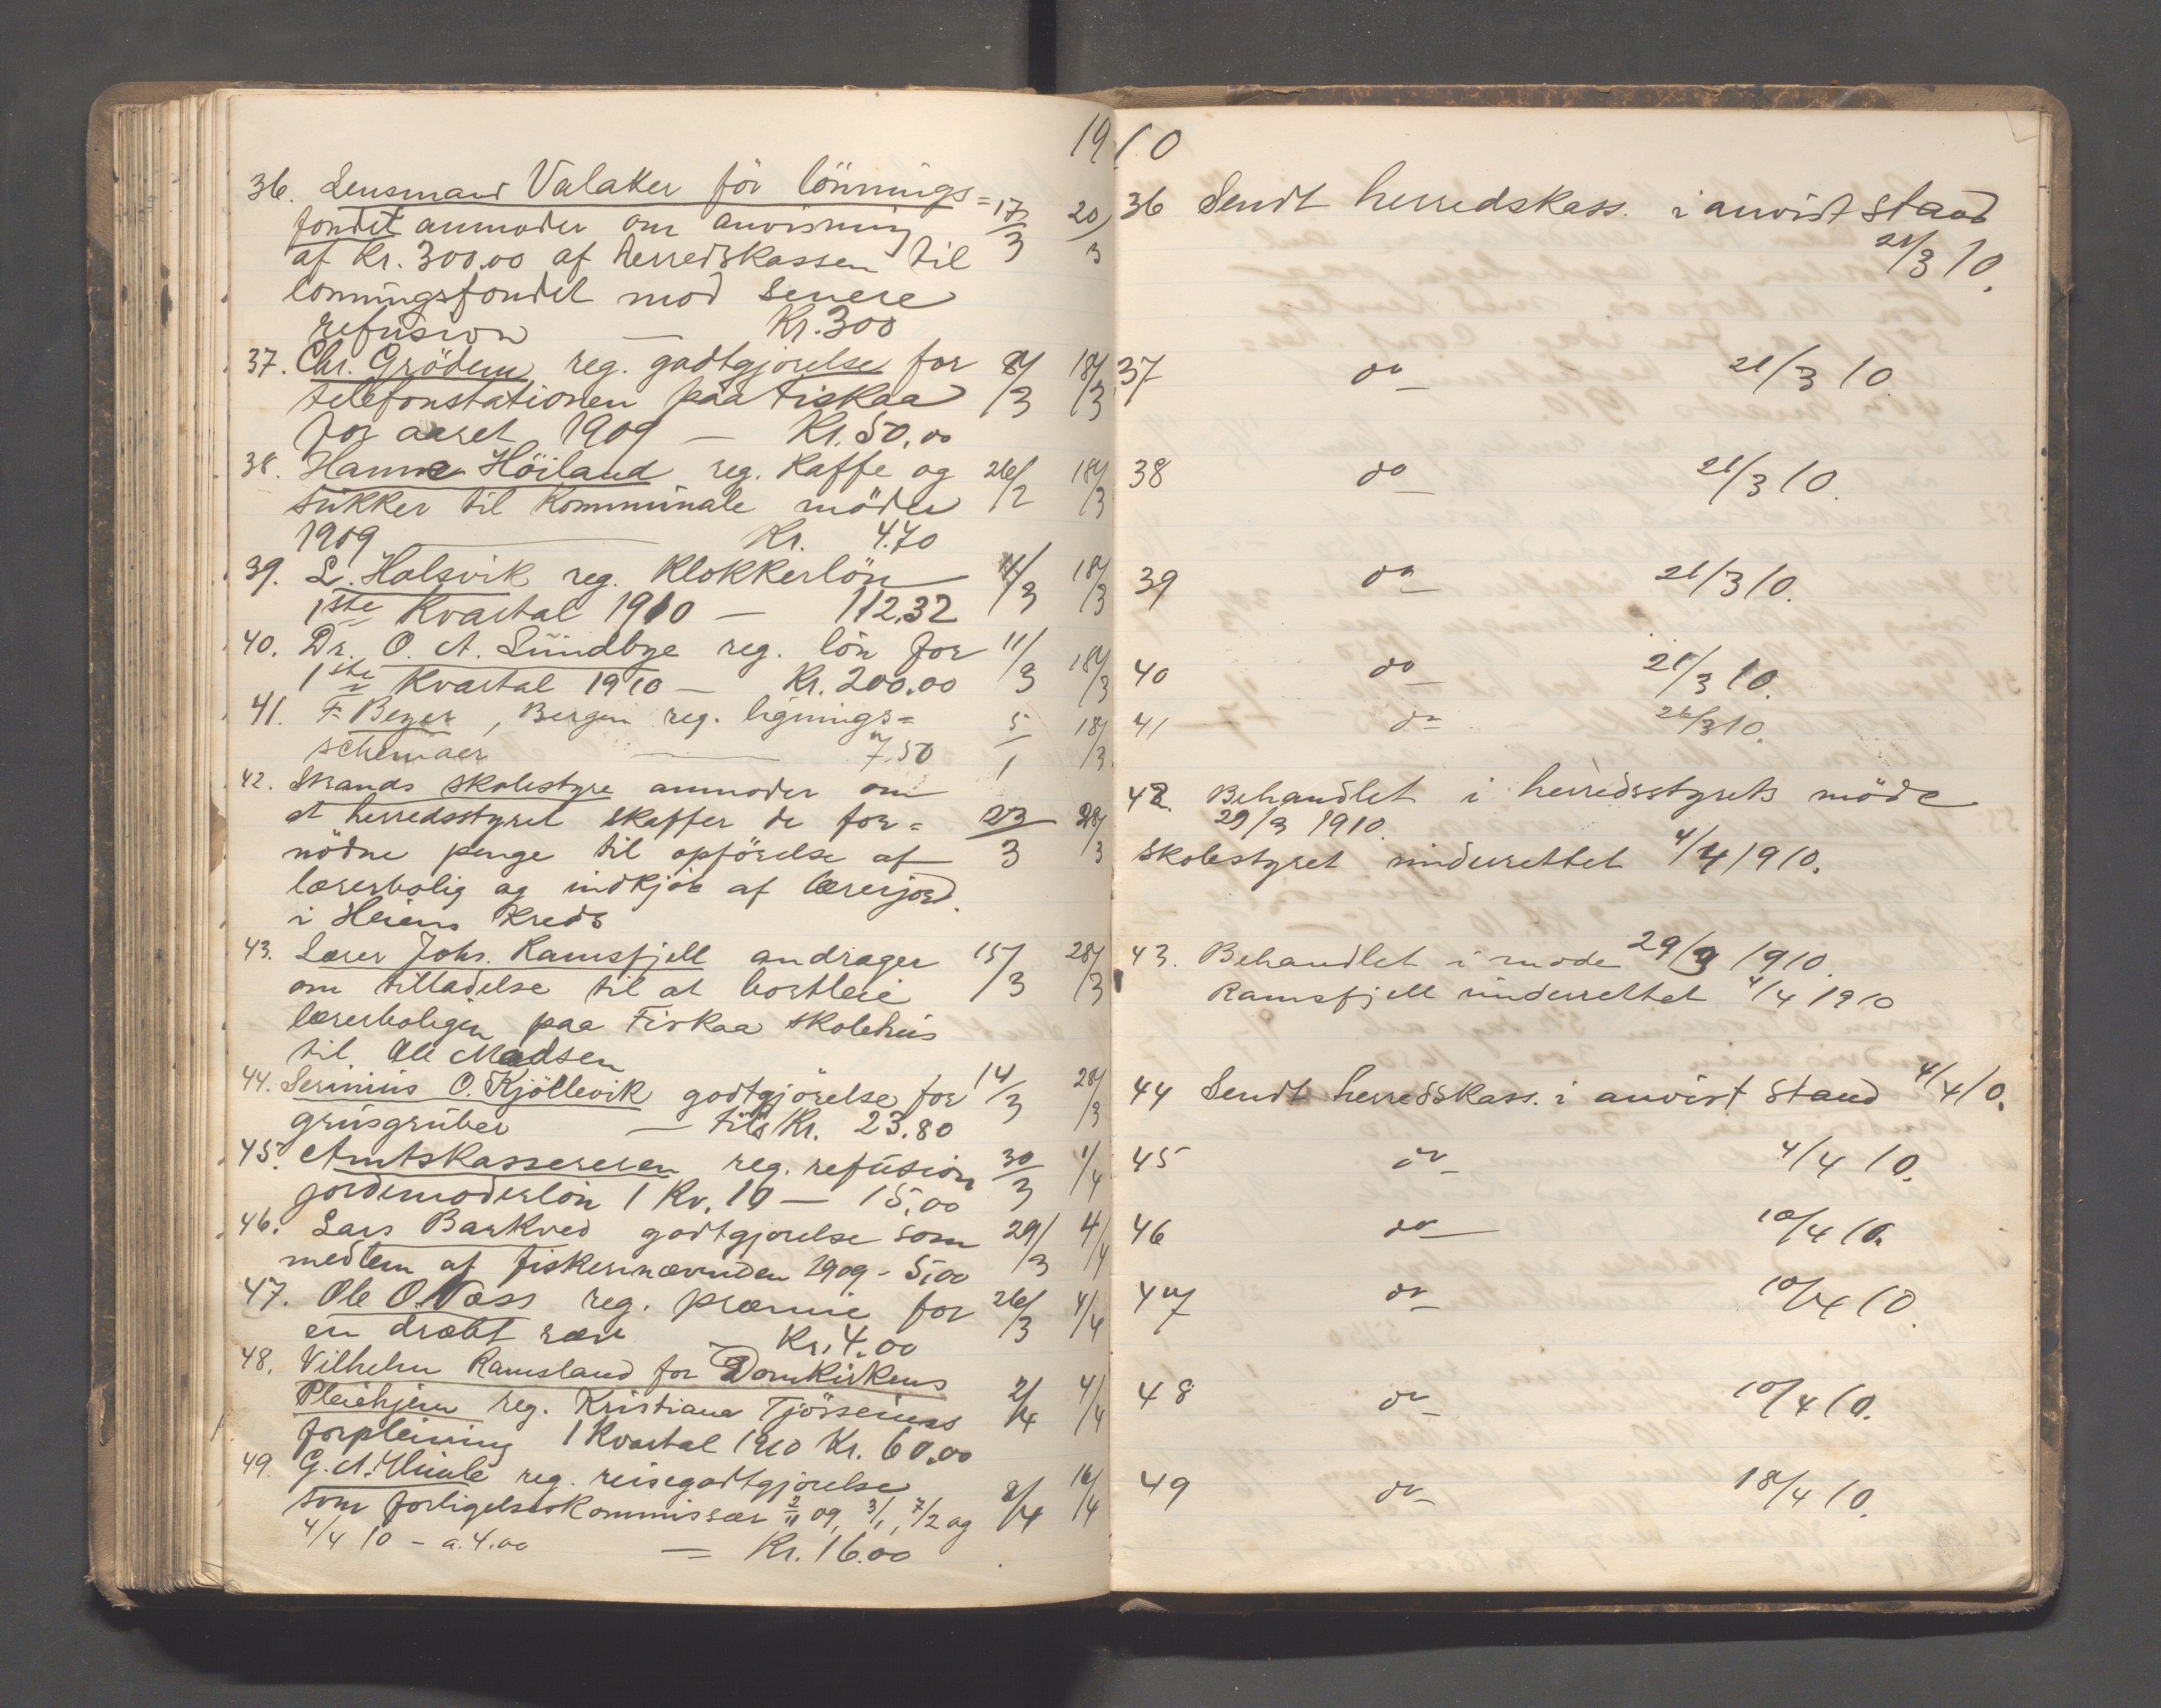 1910
36. Lensmand Valaker för lönnings= 17/3 20/3
fondet anmoder om anvisning
af Kr. 300,00 af herredskassen til
lonningsfondet mod senere
refusion — Kr. 300
37. Chr. Grödem reg. godtgjorelse for 8/3 18/3
telefonstationen paa Fiskaa
for aaret 1909 — Kr. 50,00
38. Hanne Höiland reg. Kaffe og 26/2 18/3
sukker til Kommunale möder
1909 — Kr. 4.70
39. L. Holsvik reg. Klokkerlön 11/3 18/3
1ste Kvartal 1910 — 112,32
40. Dr. O. A. Lundbye reg. lön for 11/3 18/3
1ste Kvartal 1910 — Kr. 200.00
41. F. Beyer, Bergen reg. lignings= 5/1 18/3
schemaer — " 7.50
42. Strands skolestyre anmoder om
at herredsstyret skaffer de for= 23/3 28/3
nödne penge til opförelse af
lærerbolig og indkjöb af lærerjord
i Heiens Kreds
43. Lærer Johs. Ramsfjell andrager 15/3 28/3
om tilladelse til at bortleie
lærerboligen paa Fiskaa skolehus
til Ole Madsen
44. Serinius O. Kjöllevik godtgjörelse for 14/3 28/3
grusgruber — tils Kr. 23.80
45. Amtskassereren reg. refusion 30/3 1/4
jordemoderlön 1 Kv. 10 — 15,00
46. Lars Barkved godtgjorelse som 29/3 4/4
medlem af fiskerinævnden 1909 - 5,00
47. Ole O. Voss reg. præmie for 26/3 4/4
en dræbt ræv — Kr. 4.00
48. Vilhelm Ramsland for Domkirkens
Pleiehjem reg. Kristiane Tjösseims 2/4 4/4
forpleining 1 Kvartal 1910 Kr. 60.00
49. G. A. Himle reg. reisegodtgjorelse
som forligelseskommissær 2/11 09, 3/1, 7/2 og 8/4 16/4
4/4 10 - a. 4.00 = Kr. 16.00
36 Sendt herredskass. i anvist stand
21/3 10.
37 do 21/3 10
38 do 21/3 10.
39 do 21/3 10.
40 do 21/3 10.
41 do 26/3 10.
42. Behandlet i herredsstyrets möde
29/3 1910.
skolestyret underrettet 4/4 1910.
43. Behandlet i mode 29/3 1910.
Ramsfjell underrettet 4/4 1910
44 Sendt herredskass. i anvist stand 4/4 10.
45 do 4/4 10.
46 do 10/4 10.
47 do 10/4 10.
48 do 10/4 10.
49 do 18/4 10.